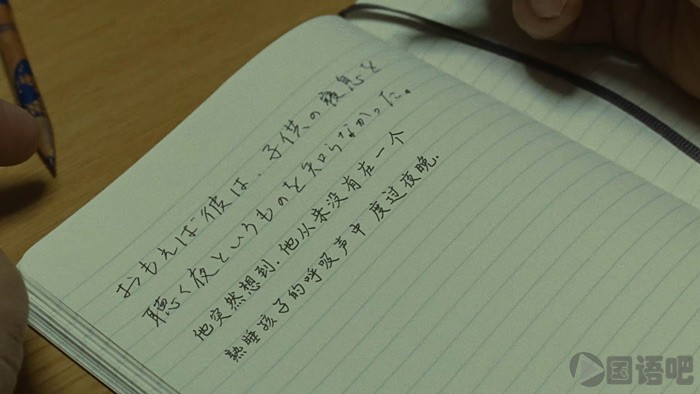 おもえば彼は、子供の寝息を
聴く夜というものを知らなかった。
他突然想到.他从来没有在一个
熟睡孩子的呼吸声中度过夜晚.
国语吧